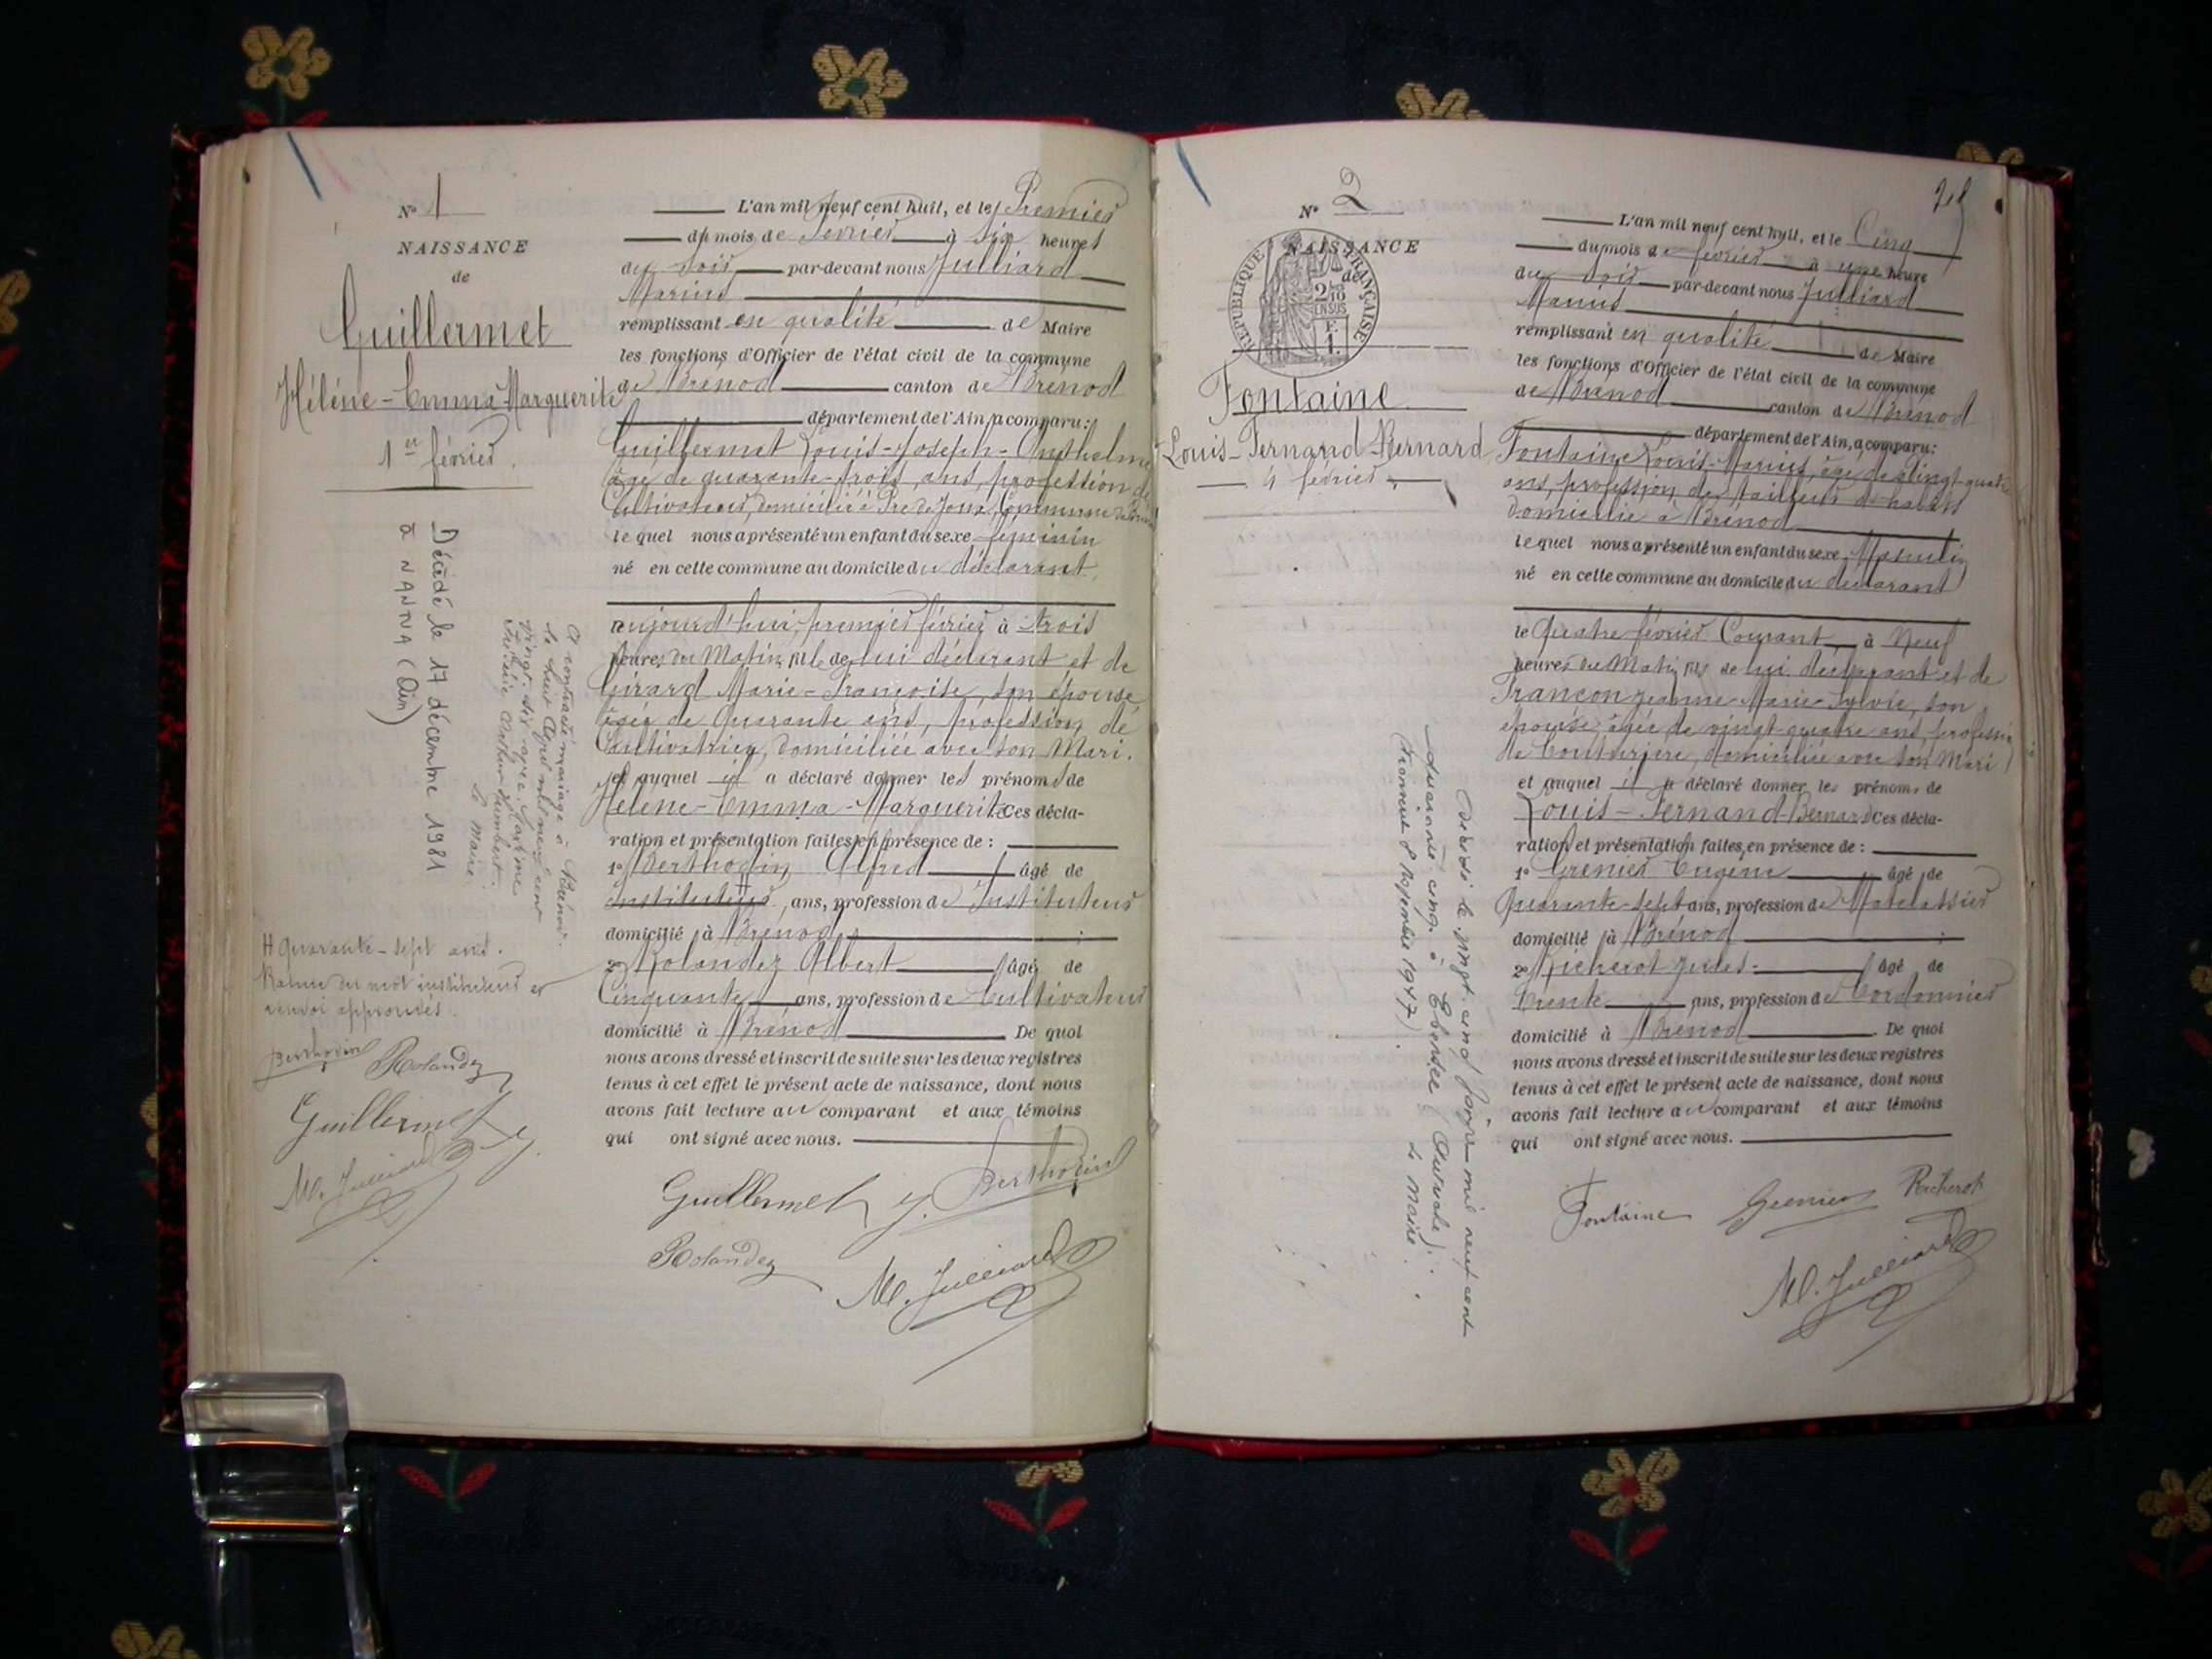 N° 1
NAISSANCE
de
Guillermet
Hélène-Emma-Marguerite
1er février.
Décédé le 17 décembre 1981
à NANTUA (Ain)
A contracté mariage à Brénod
le huit Avril mil neuf cent
vingt-six avec
Le Maire
# Quarante-sept ans.
Rature du mot instituteur et
renvoi approuvés.
Berthodin Rolandez
Guillermet
M. Julliard
L'an mil neuf cent huit, et le Premier
du mois de février à six heures
du soir par-devant nous Julliard
Marius
remplissant en qualité de Maire
les fonctions d'Officier de l'état civil de la commune
de Brénod canton de Brénod
département de l'Ain, a comparu:
Guillermet Louis-Joseph-Anthelme
âgé de quarante-trois ans, profession de
Cultivateur, domicilié à Pré de Joux, Commune de Brénod
lequel nous a présenté un enfant du sexe féminin
né en cette commune au domicile du déclarant
aujourd'hui, premier février à trois
heures du Matin, fille de lui déclarant et de
Girard Marie-Françoise, son épouse
âgée de Quarante ans, profession de
Cultivatrice, domiciliée avec son Mari.
et auquel il a déclaré donner les prénoms de
Hélène-Emma-Marguerite Ces décla-
ration et présentation faites en présence de :
1° Berthodin Alfred âgé de
instituteur, ans, profession de Instituteur
domicilié à Brénod ;
2° Rolandez Albert âgé de
Cinquante ans, profession de Cultivateur
domicilié à Brénod De quoi
nous avons dressé et inscrit de suite sur les deux registres
tenus à cet effet le présent acte de naissance, dont nous
avons fait lecture au comparant et aux témoins
qui ont signé avec nous.
Guillermet J. Berthodin
Rolandez M. Julliard
N° 2
NAISSANCE
de
RÉPUBLIQUE FRANÇAISE
2/10
EN SUS
Fontaine
Louis-Fernand-Bernard
4 février
Décédé le vingt-cinq mil neuf cent
quarante cinq à Ebensee (Autriche).
(transcrit 8 Novembre 1947).
Le Maire.
L'an mil neuf cent huit, et le Cinq
du mois de février à une heure
du soir par-devant nous Julliard
Marius
remplissant en qualité de Maire
les fonctions d'Officier de l'état civil de la commune
de Brénod canton de Brénod
département de l'Ain, a comparu:
Fontaine Louis-Marius, âgé de vingt-quatre
ans, profession de tailleur d'habits
domicilié à Brénod
lequel nous a présenté un enfant du sexe Masculin
né en cette commune au domicile du déclarant
le Quatre février Courant à Neuf
heures du Matin, fils de lui déclarant et de
Françon Jeanne-Marie-Sylvie, son
épouse, âgée de vingt-quatre ans, profession
de Couturière, domiciliée avec son Mari
et auquel il a déclaré donner les prénoms de
Louis-Fernand-Bernard Ces décla-
ration et présentation faites en présence de :
1° Grenier Eugène âgé de
Quarante-sept ans, profession de Matelassier
domicilié à Brénod ;
2° Richerot Jules âgé de
Trente ans, profession de Cordonnier
domicilié à Brénod De quoi
nous avons dressé et inscrit de suite sur les deux registres
tenus à cet effet le présent acte de naissance, dont nous
avons fait lecture au comparant et aux témoins
qui ont signé avec nous.
Fontaine Grenier Richerot
M. Julliard